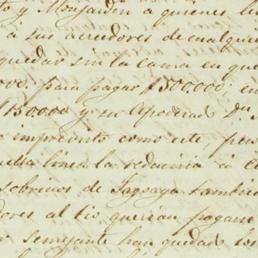 y Monjardin a quienes lu
a sus acreedores de cualquie
quedar sin la cama en que
para pagar $500000; en
$150000 y su Apoderado Dn.
imprevisto como este, pero
linea la reduciria á
sobrinos de Sagoaga tambien
ores al tio querian pagarse
semejante han quedado los